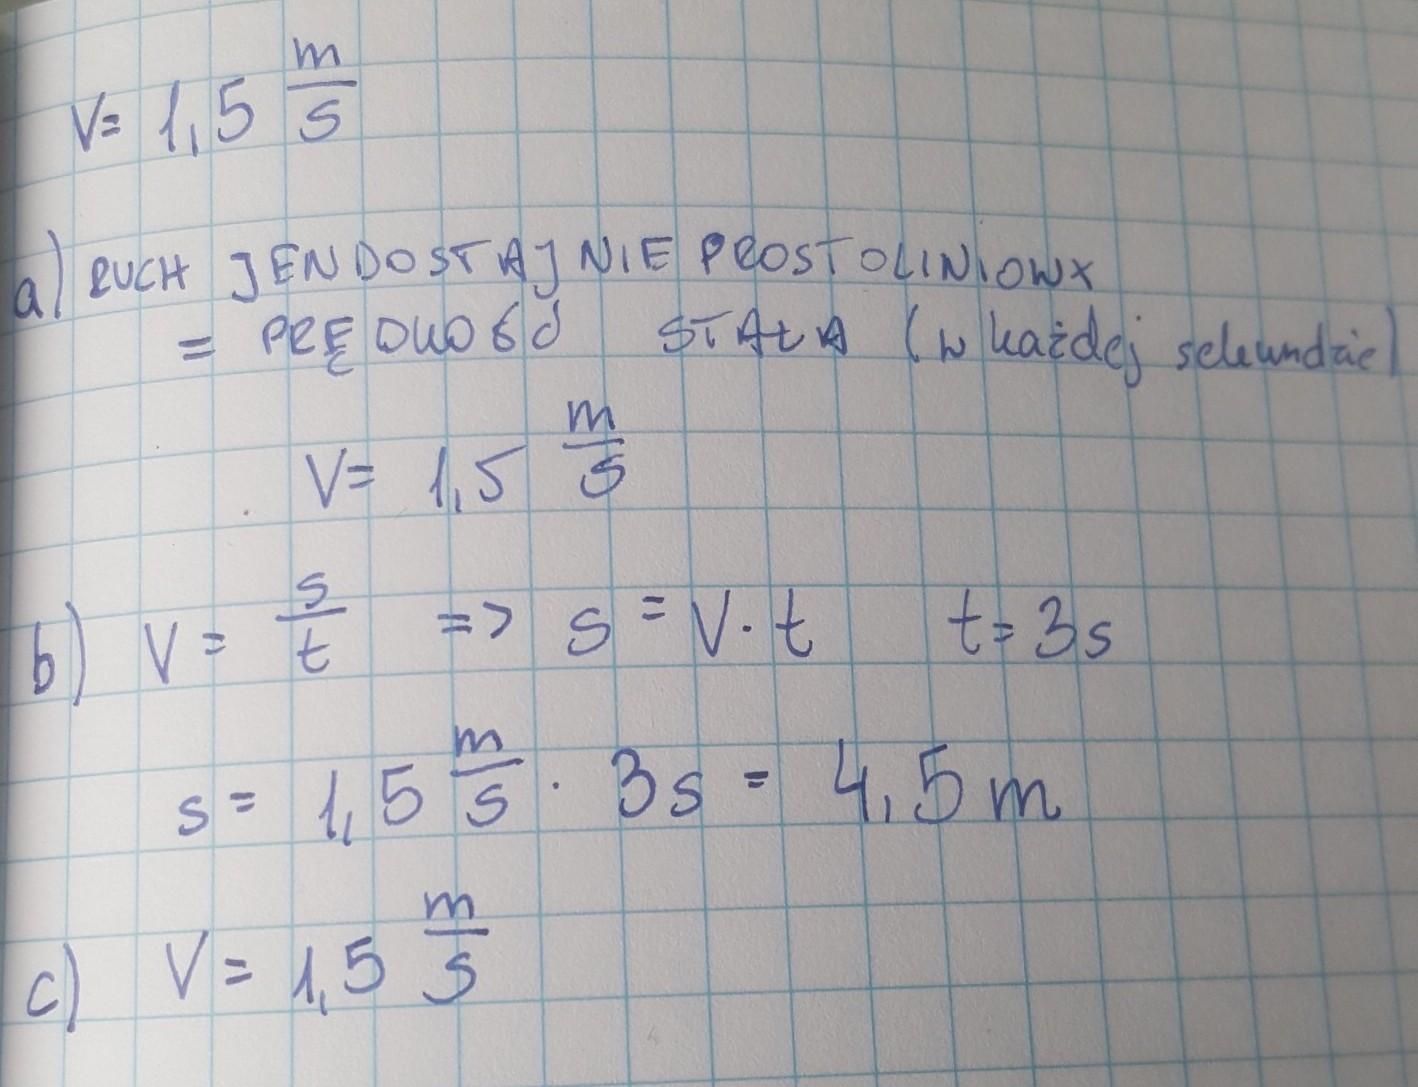 V= 1,5 m/s
a) RUCH JENDOSTAJNIE PROSTOLINIOWY
= PRĘDKOŚĆ STAŁA (w każdej sekundzie)
V= 1,5 m/s
b) V = s/t => s = V · t t = 3s
s = 1,5 m/s · 3s = 4,5 m
c) V = 1,5 m/s